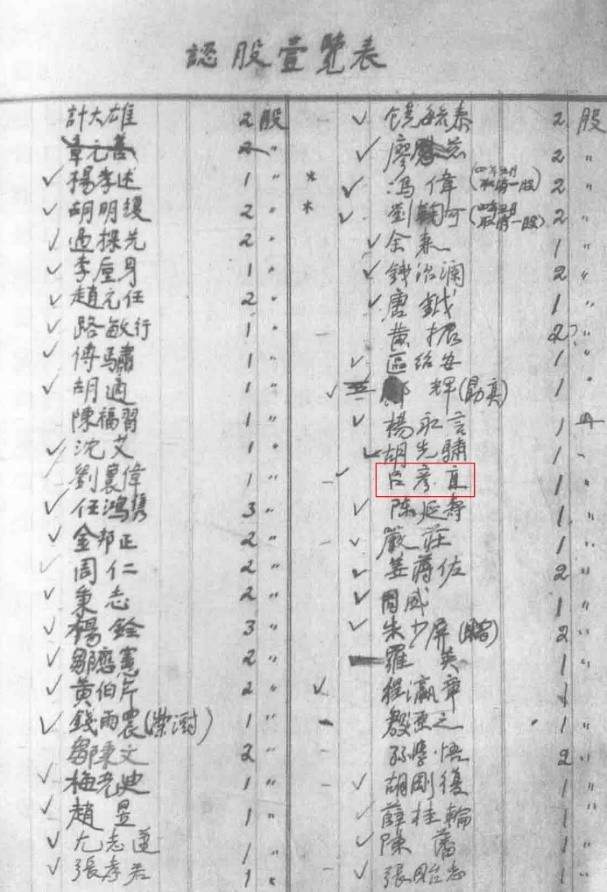 認股壹覽表
計大雄 2 股
章元善 2 〃
楊孝述 1 〃
胡明復 2 〃
過探先 2 〃
李垕身 1 〃
趙元任 2 〃
路敏行 1 〃
傅驌 1 〃
胡適 1 〃
陳福習 1 〃
沈艾 1 〃
劉寰偉 1 〃
任鴻雋 3 〃
金邦正 2 〃
周仁 2 〃
秉志 2 〃
楊銓 3 〃
鄒應憲 2 〃
黃伯芹 2 〃
錢雨農(崇澍) 1 〃
鄒秉文 2 〃
梅光迪 1 〃
趙昱 1 〃
尤志邁 1 〃
張孝若 1 〃
饒毓泰 2 股
廖慰慈 2 〃
馮偉 2 〃
劉鞠可 2 〃
余森 1 〃
錢治瀾 2 〃
唐鉞 1 〃
黃振 2? 〃
區紹安 1 〃
輝(勛真) 1 〃
楊永言 1
胡先驌 1 〃
呂彥直 1 〃
陳延壽 1 〃
嚴莊 1 〃
姜蔣佐 2 〃
周威 1 〃
朱少屏 2 〃
羅英 1 〃
程瀛章 1 〃
1 〃
孫學悟 2 〃
胡剛復 1 〃
薛桂輪 1 〃
陳藩 1 〃
張貽志 1 〃